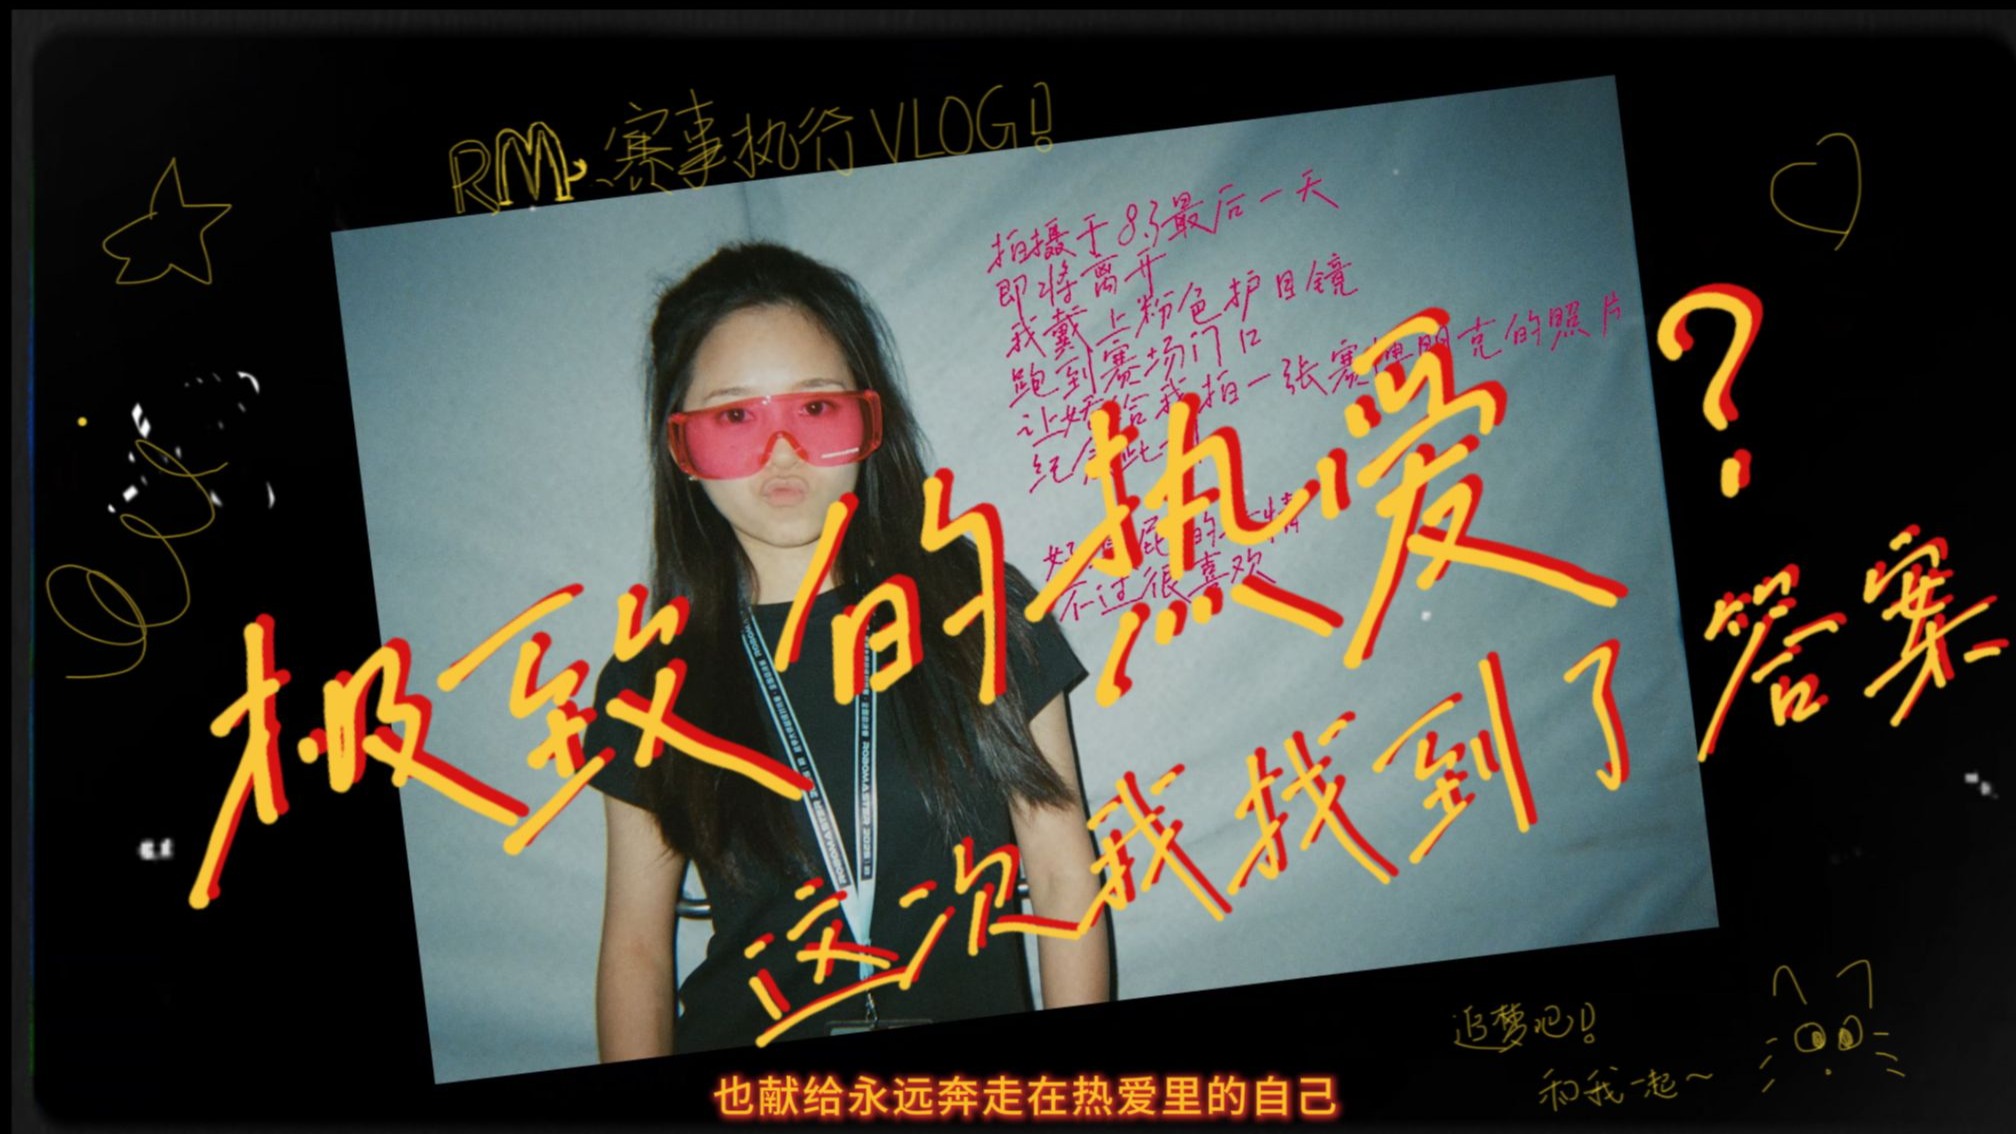 RM.赛事执行VLOG!
拍摄于8.3最后一天
即将离开
我戴上粉色护目镜
跑到赛场门口
让妖给我拍一张赛博朋克的照片
纪念此刻
好 屁的 情
不过很喜欢
极致的热爱?
这次我找到了答案
ROBOMASTER 2025
追梦吧!
和我一起~
也献给永远奔走在热爱里的自己